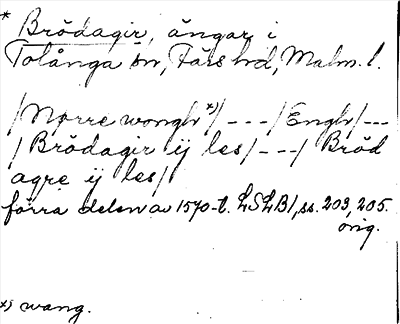 * Brödagir, ängar i
Tolånga sn, Färs hd, Malm. l.
/Nørre wongh *)/ - - - /Engh/ - - -
/ Brödagir ij les/ - - - / Bröd
agre ij les/
förra delen av 1570-t. LSLB1, ss. 203, 205.
orig.
*) wang.